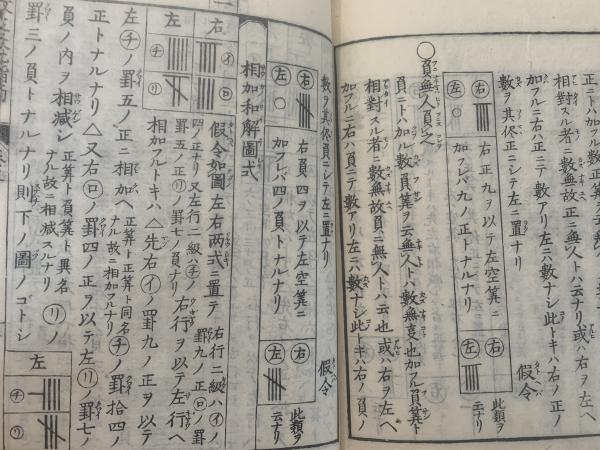 相對スル者ニ數無故正ニ無人トハ云ナリ或ハ右ヲ左ヘ
加フルニ右ハ正ニテ數アリ左ニハ數ナシ此トキハ右ノ正ノ
數ヲ其侭正ニシテ左ニ置ナリ 假令
右
左 ○
右正九ヲ以テ左空算ニ
加フレバ九ノ正トナルナリ
右
左
此類ヲ
云ナリ
○負無人負之
負ニトハ加ル數負算ヲ云無人トハ數無叓也加フル負算ト
相對スル者ニ數無故負ニ無人トハ云也或ハ右ヲ左ヘ
加フルニ右ハ負ニテ數アリ左ニハ數ナシ此トキハ右ノ負ノ
數ヲ其侭負ニシテ左ニ置ナリ 假令
右
左 ○
右負四ヲ以テ左空算ニ
加フレバ四ノ負トナルナリ
右
左
此類ヲ
云ナリ
相加和解圖式
右
イ
ロ
左
チ
リ
假令如圖左右两式ニ置テ 右行二級ハイノ
罫九ノ正ロノ罫
四ノ正ナリ又左行二級ハチノ
罫五ノ正リノ罫七ノ負ナリ 右行ヲ以テ左行ヘ
相加フルトキハ△先右イノ罫九ノ正ヲ以テ
左チノ罫五ノ正ニ相加ヘ 正算ト正算ト同名
ナル故ニ相加フルナリ チノ罫拾四ノ
正トナルナリ△又右ロノ罫四ノ正ヲ以テ左リノ罫七ノ
負ノ内ヲ相減シ 正算ト負算ト異名
ナル故ニ相減スルナリ リノ
罫三ノ負トナルナリ則下ノ圖ノコトシ
左
チ
リ